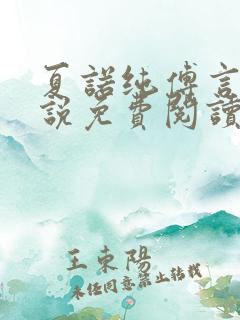 夏諾純傅言
說免費閱讀
王東陽
未经同意禁止转载